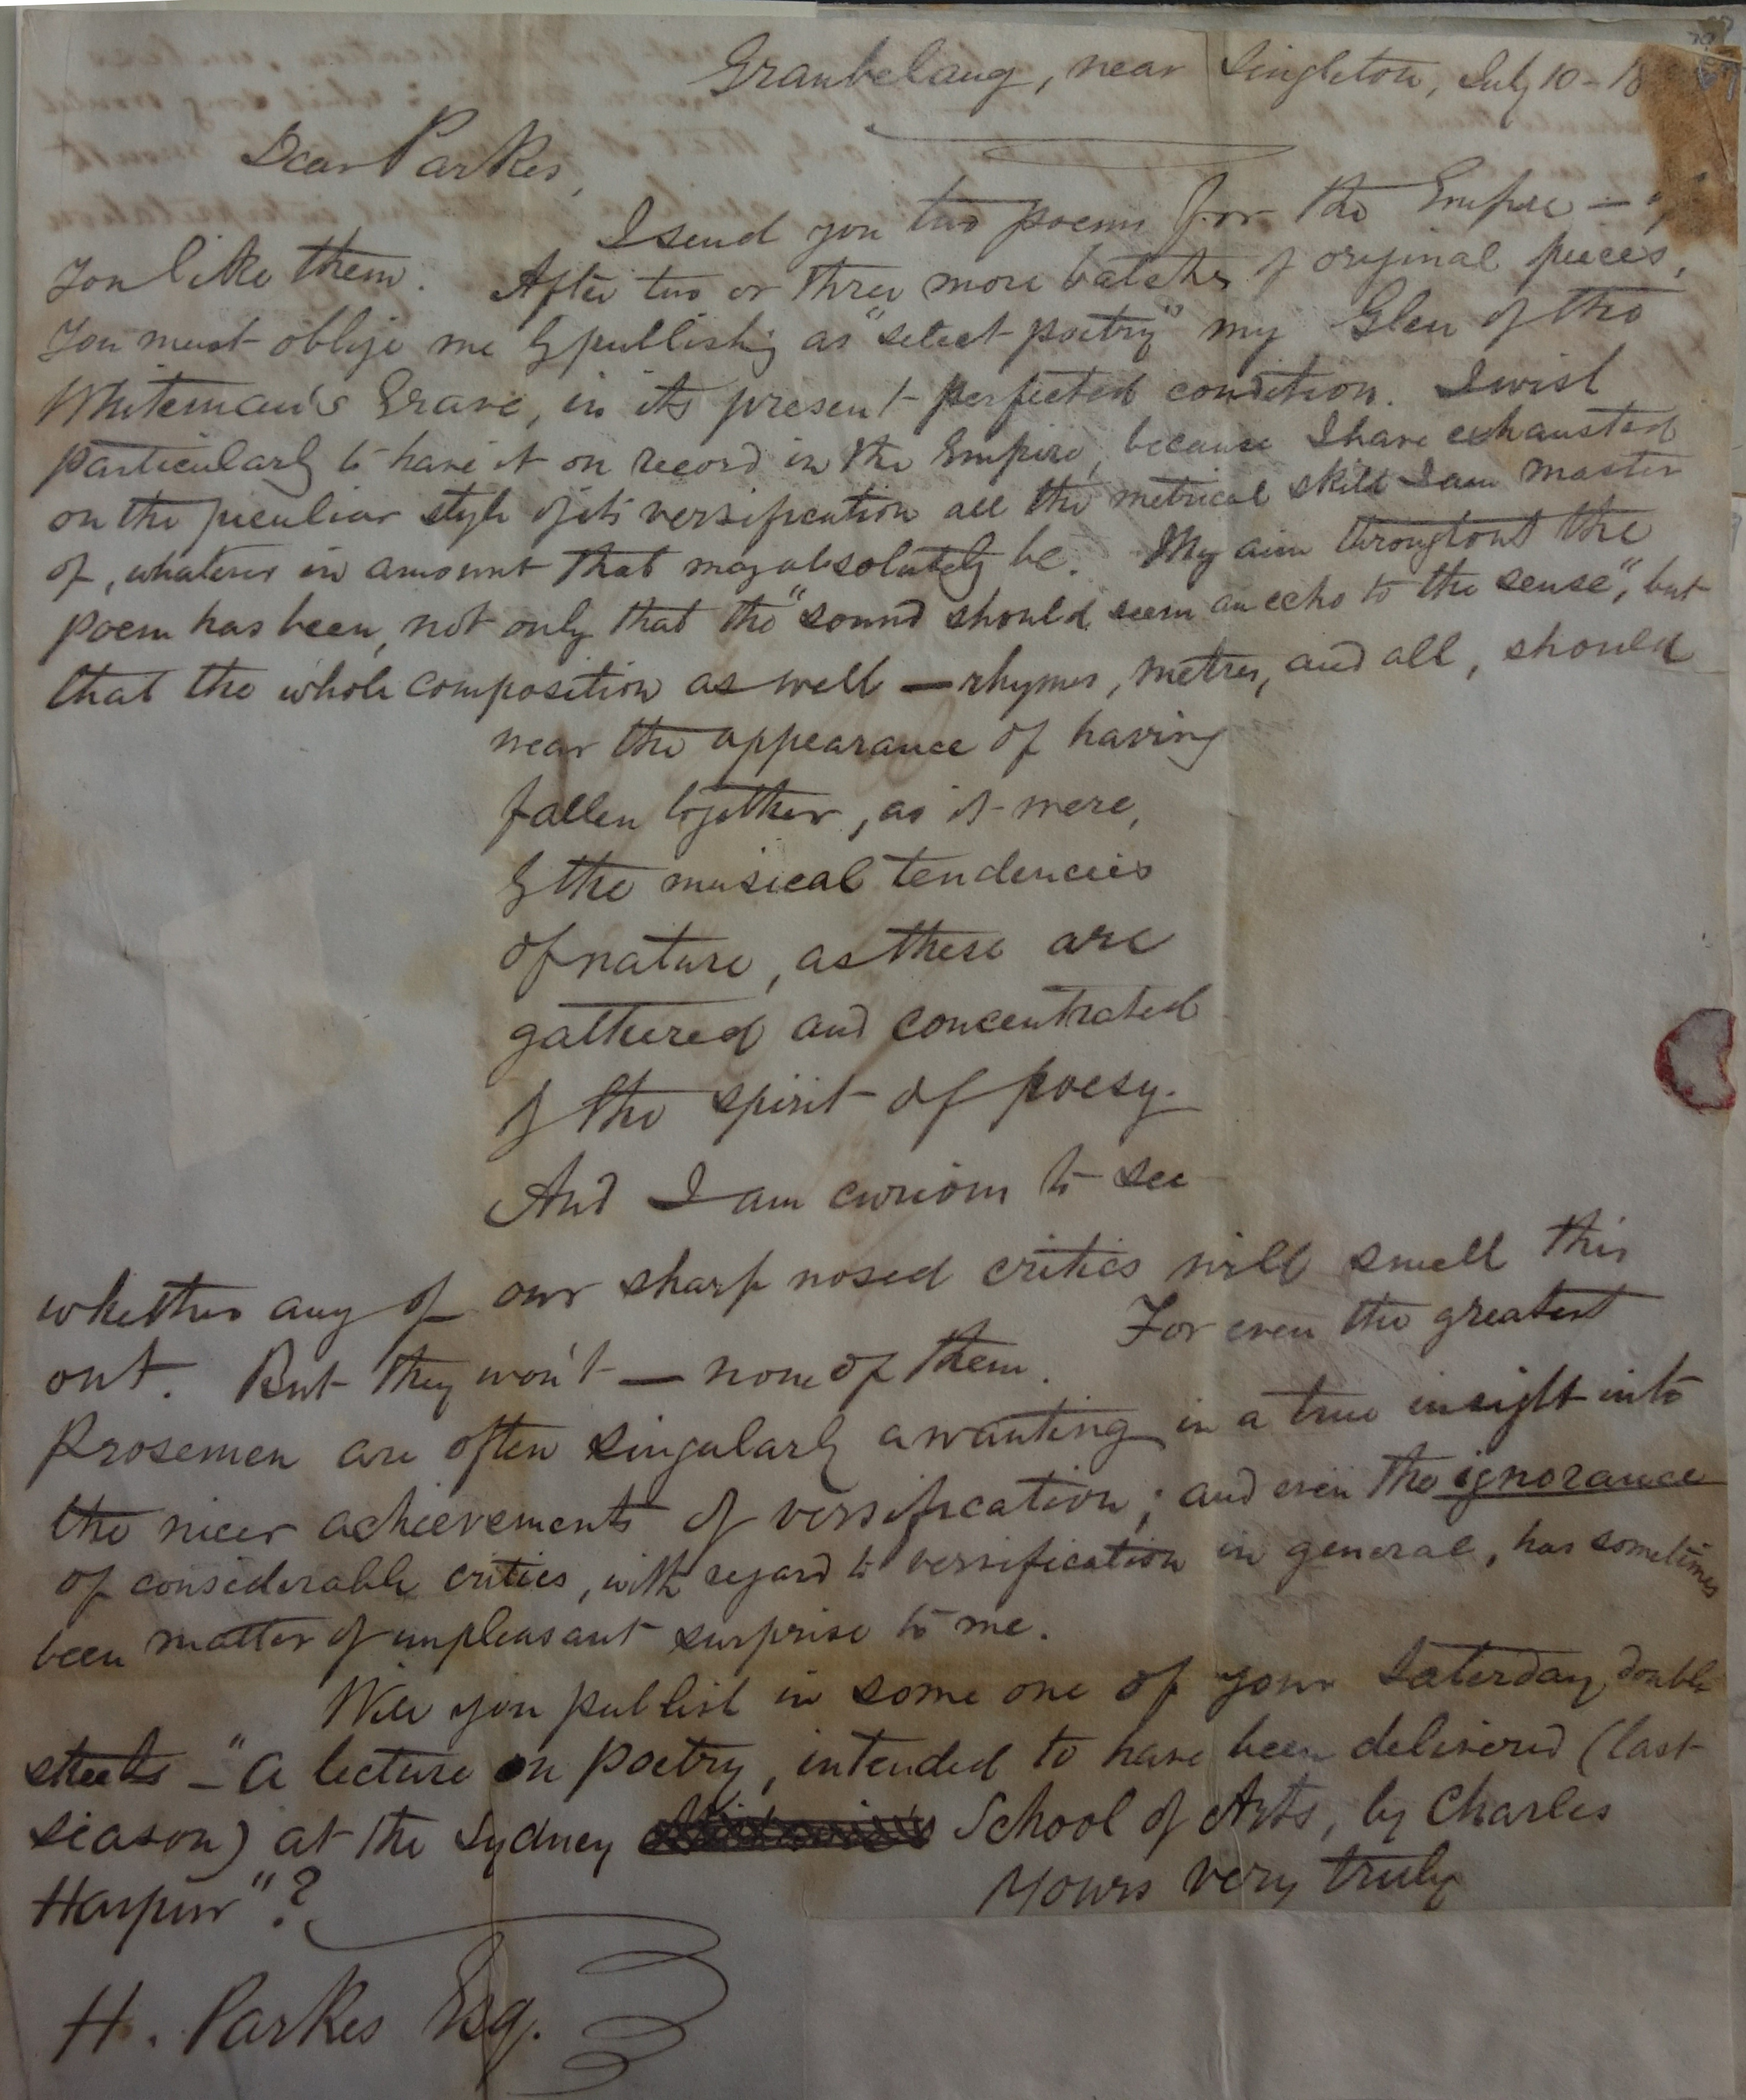 Granbelang, near Singleton, July 10 - 18
Dear Parkes,
I send you two poems for the Empire —
You like them. After two or three more batches of original pieces,
You must oblige me by publishing as "select poetry" my Glen of the
Whiteman's Grave, in its present perfected condition. I wish
particularly to have it on record in the Empire, because I have exhausted
on the peculiar style of its versification all the metrical skill I am master
of, whatever in amount that may absolutely be. My aim throughout the
poem has been, not only that the "sound should seem an echo to the sense", but
that the whole composition as well — rhymes, metres, and all, should
wear the appearance of having
fallen together, as it were,
by the musical tendencies
of nature, as these are
gathered and concentrated
by the spirit of poesy.
And I am curious to see
whether any of our sharp nosed critics will smell this
out. But they won't — none of them. For even the greatest
Prosemen are often singularly awanting in a true insight into
the nicer achievements of versification; and even the ignorance
of considerable critics, with regard to versification in general, has sometimes
been matter of unpleasant surprise to me.
Will you publish in some one of your Saterday double
sheets — "A lecture on Poetry, intended to have been delivered (last
season) at the Sydney School of Arts, by Charles
Harpur"?
Yours very truly
H. Parkes Esq.